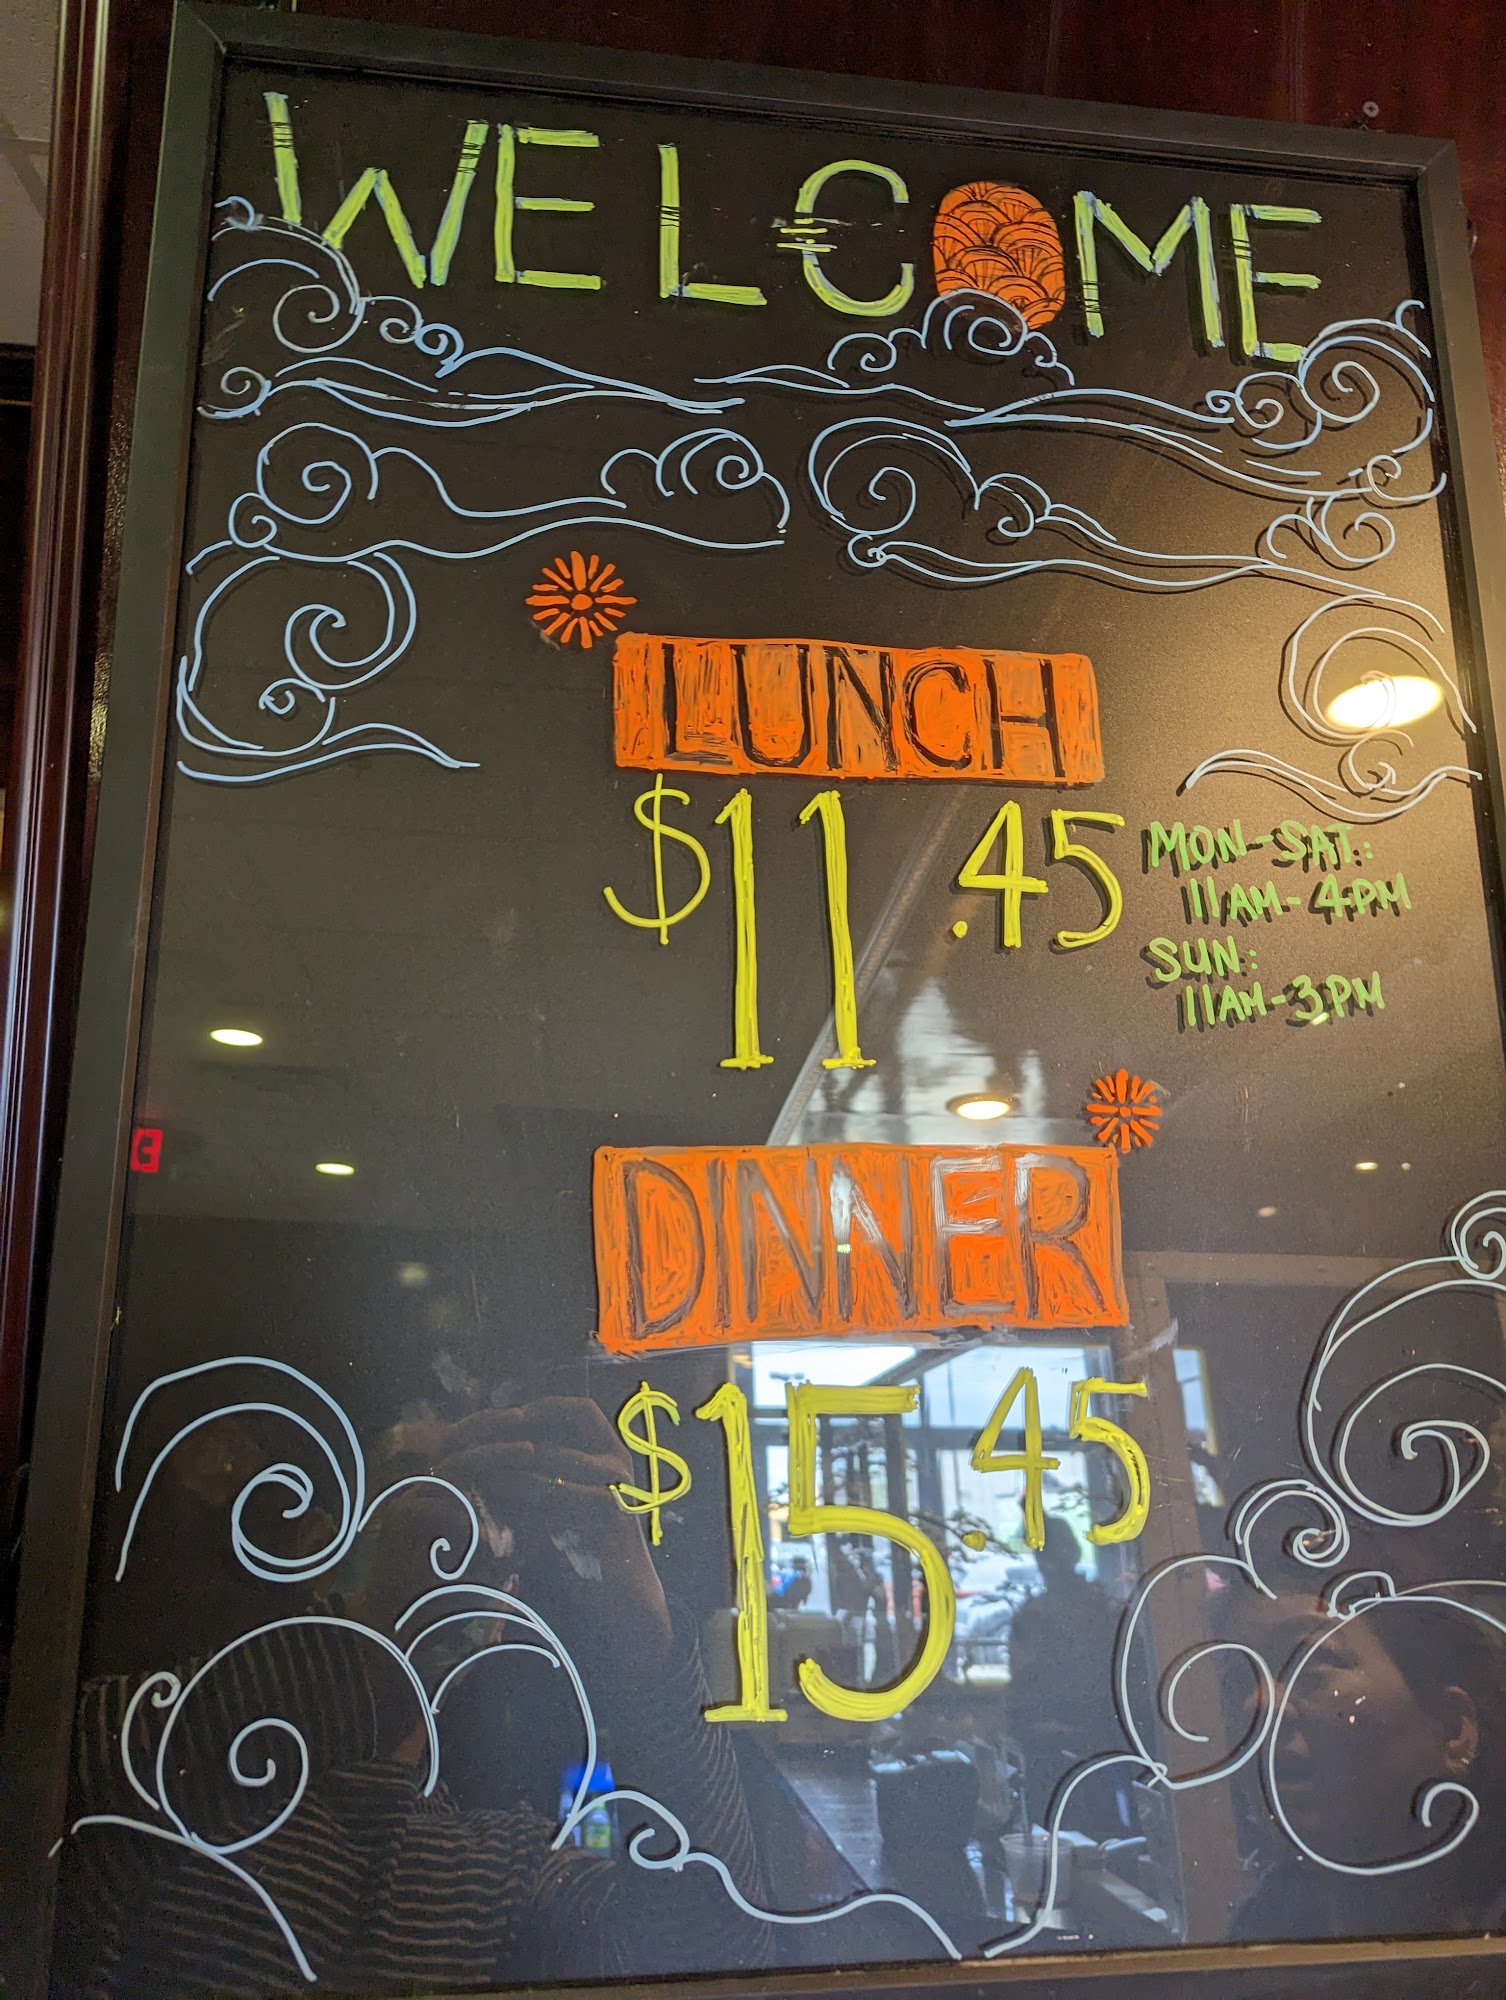 WELCOME
LUNCH
$11.45
MON-SAT:
11AM-4PM
SUN:
11AM-3PM
DINNER
$15.45